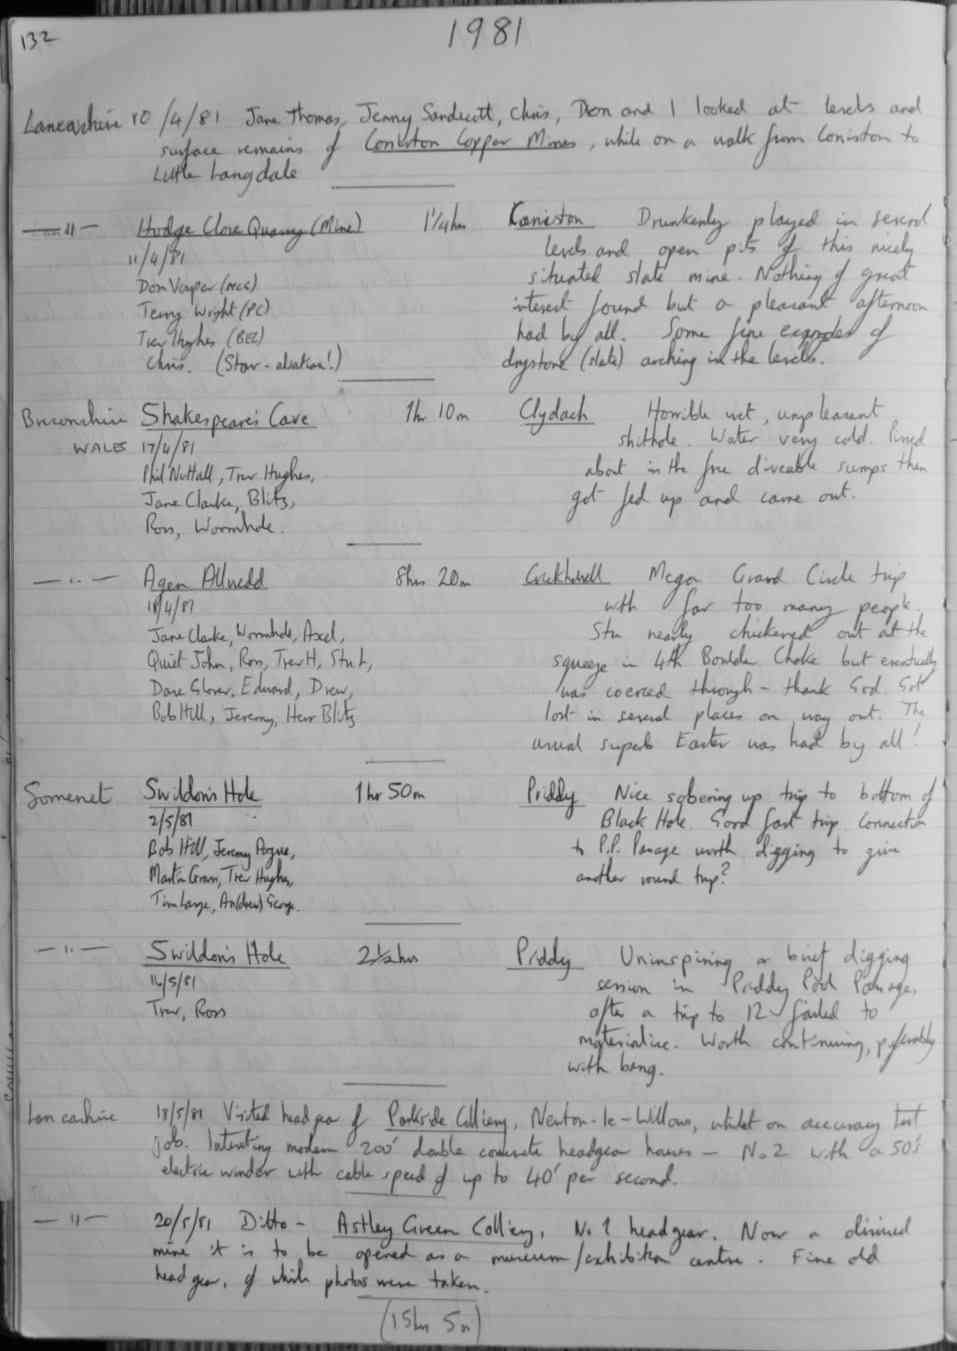 132
1981
Lancashire 10/4/81 Jane Thomas, Jenny Sandercott, Chris, Don and I looked at levels and
surface remains of Coniston Copper Mines, while on a walk from Coniston to
Little Langdale
—"— Hodge Close Quarry (Mine) 1¼hrs Coniston Drunkenly played in several
11/4/81 levels and open pits of this nicely
Don Vosper (MCG) situated slate mine. Nothing of great
Terry Wright (PC) interest found but a pleasant afternoon
Trev Hughes (BEC) had by all. Some fine examples of
Chris. (Starvation!) drystone (slate) arching in the levels.
Breconshire Shakespeare's Cave 1hr 10m Clydach Horrible wet, unpleasant
WALES 17/4/81 shithole. Water very cold. Pissed
Phil Nuttall, Trev Hughes, about in the free diveable sumps then
Jane Clarke, Blitz, got fed up and came out.
Ross, Wormhole.
—"— Agen Allwedd 8hrs 20m Crickhowell Mega Grand Circle trip
18/4/81 with far too many people.
Jane Clarke, Wormhole, Axel, Stu nearly chickened out at the
Quiet John, Ross, Trev H, Stu L, squeeze in 4th Boulder Choke but eventually
Dave Glover, Edward, Drew, was coerced through - thank God. Got
Bob Hill, Jeremy, Herr Blitz lost in several places on way out. The
usual superb Easter was had by all!
Somerset Swildon's Hole 1hr 50m Priddy Nice sobering up trip to bottom of
2/5/81 Black Hole. Good fast trip. Connection
Bob Hill, Jeremy to P.P. Passage worth digging to give
Martin Grass, Trev Hughes, another round trip?
Tim Large, An(drew)
—"— Swildon's Hole 2½hrs Priddy Uninspiring a brief digging
/5/81 session in Priddy Pool Passage,
Trev, Ross after a trip to 12 failed to
materialise. Worth continuing, preferably
with bang.
Lancashire 18/5/81 Visited headgear of Parkside Colliery, Newton-le-Willows, whilst on accuracy test
job. Interesting modern 200' double concrete headgear houses - No 2 with a 50's
electric winder with cable speed of up to 40' per second.
—"— 20/5/81 Ditto - Astley Green Colliery, No 1 headgear. Now a disused
mine it is to be opened as a museum/exhibition centre. Fine old
headgear, of which photos were taken.
(15hrs 5m)